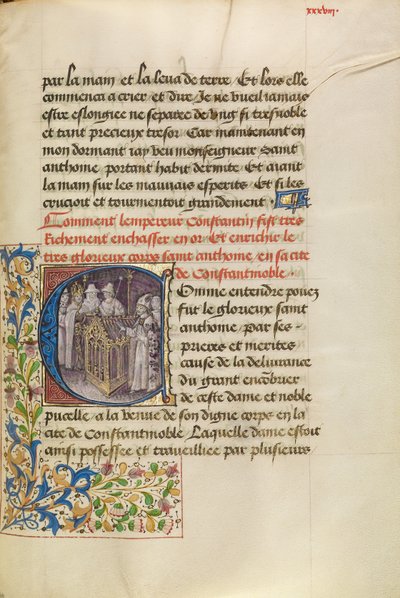 xxxviii.
par la main et la leva de terre Et lors elle
commenca a crier et dire Je ne vueil iamais
estre eslongiee ne separee de ung si tresnoble
et tant precieux tresor Car maintenant en
mon dormant iay veu monseigneur saint
anthoine portant habit dermite Et aiant
la main sur les mauuais esperits Et si les
crucioit et tourmentoit grandement
Comment lempereur Constantin fist tres
Richement enchasser en or Et enrichir le
tres glorieux corps saint anthoine en sa cite
de Constantinoble
Comme entendre pouez
fut le glorieux saint
anthoine par ses
prieres et merites
cause de la deliurance
du grant encombrier
de ceste dame et noble
pucelle a la venue de son digne corps en la
cite de Constantinoble Laquelle dame estoit
ainsi possessee et traueilliee par plusieurs